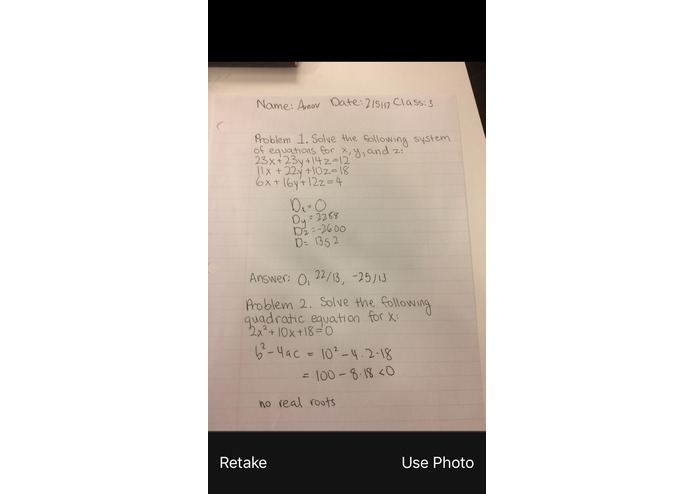 Name: Arnav Date: 2/5/17 Class: 3
Problem 1. Solve the following system
of equations for x, y, and z:
23x+23y+14z=12
11x + 22y+10z=18
6x + 16y+12z=4
Dx=0
Dy=2288
Dz=-2600
D= 1352
Answer: 0, 22/13, -25/13
Problem 2. Solve the following
quadratic equation for x:
2x²+10x+18=0
b²-4ac = 10²-4·2·18
= 100-8·18<0
no real roots
Retake Use Photo